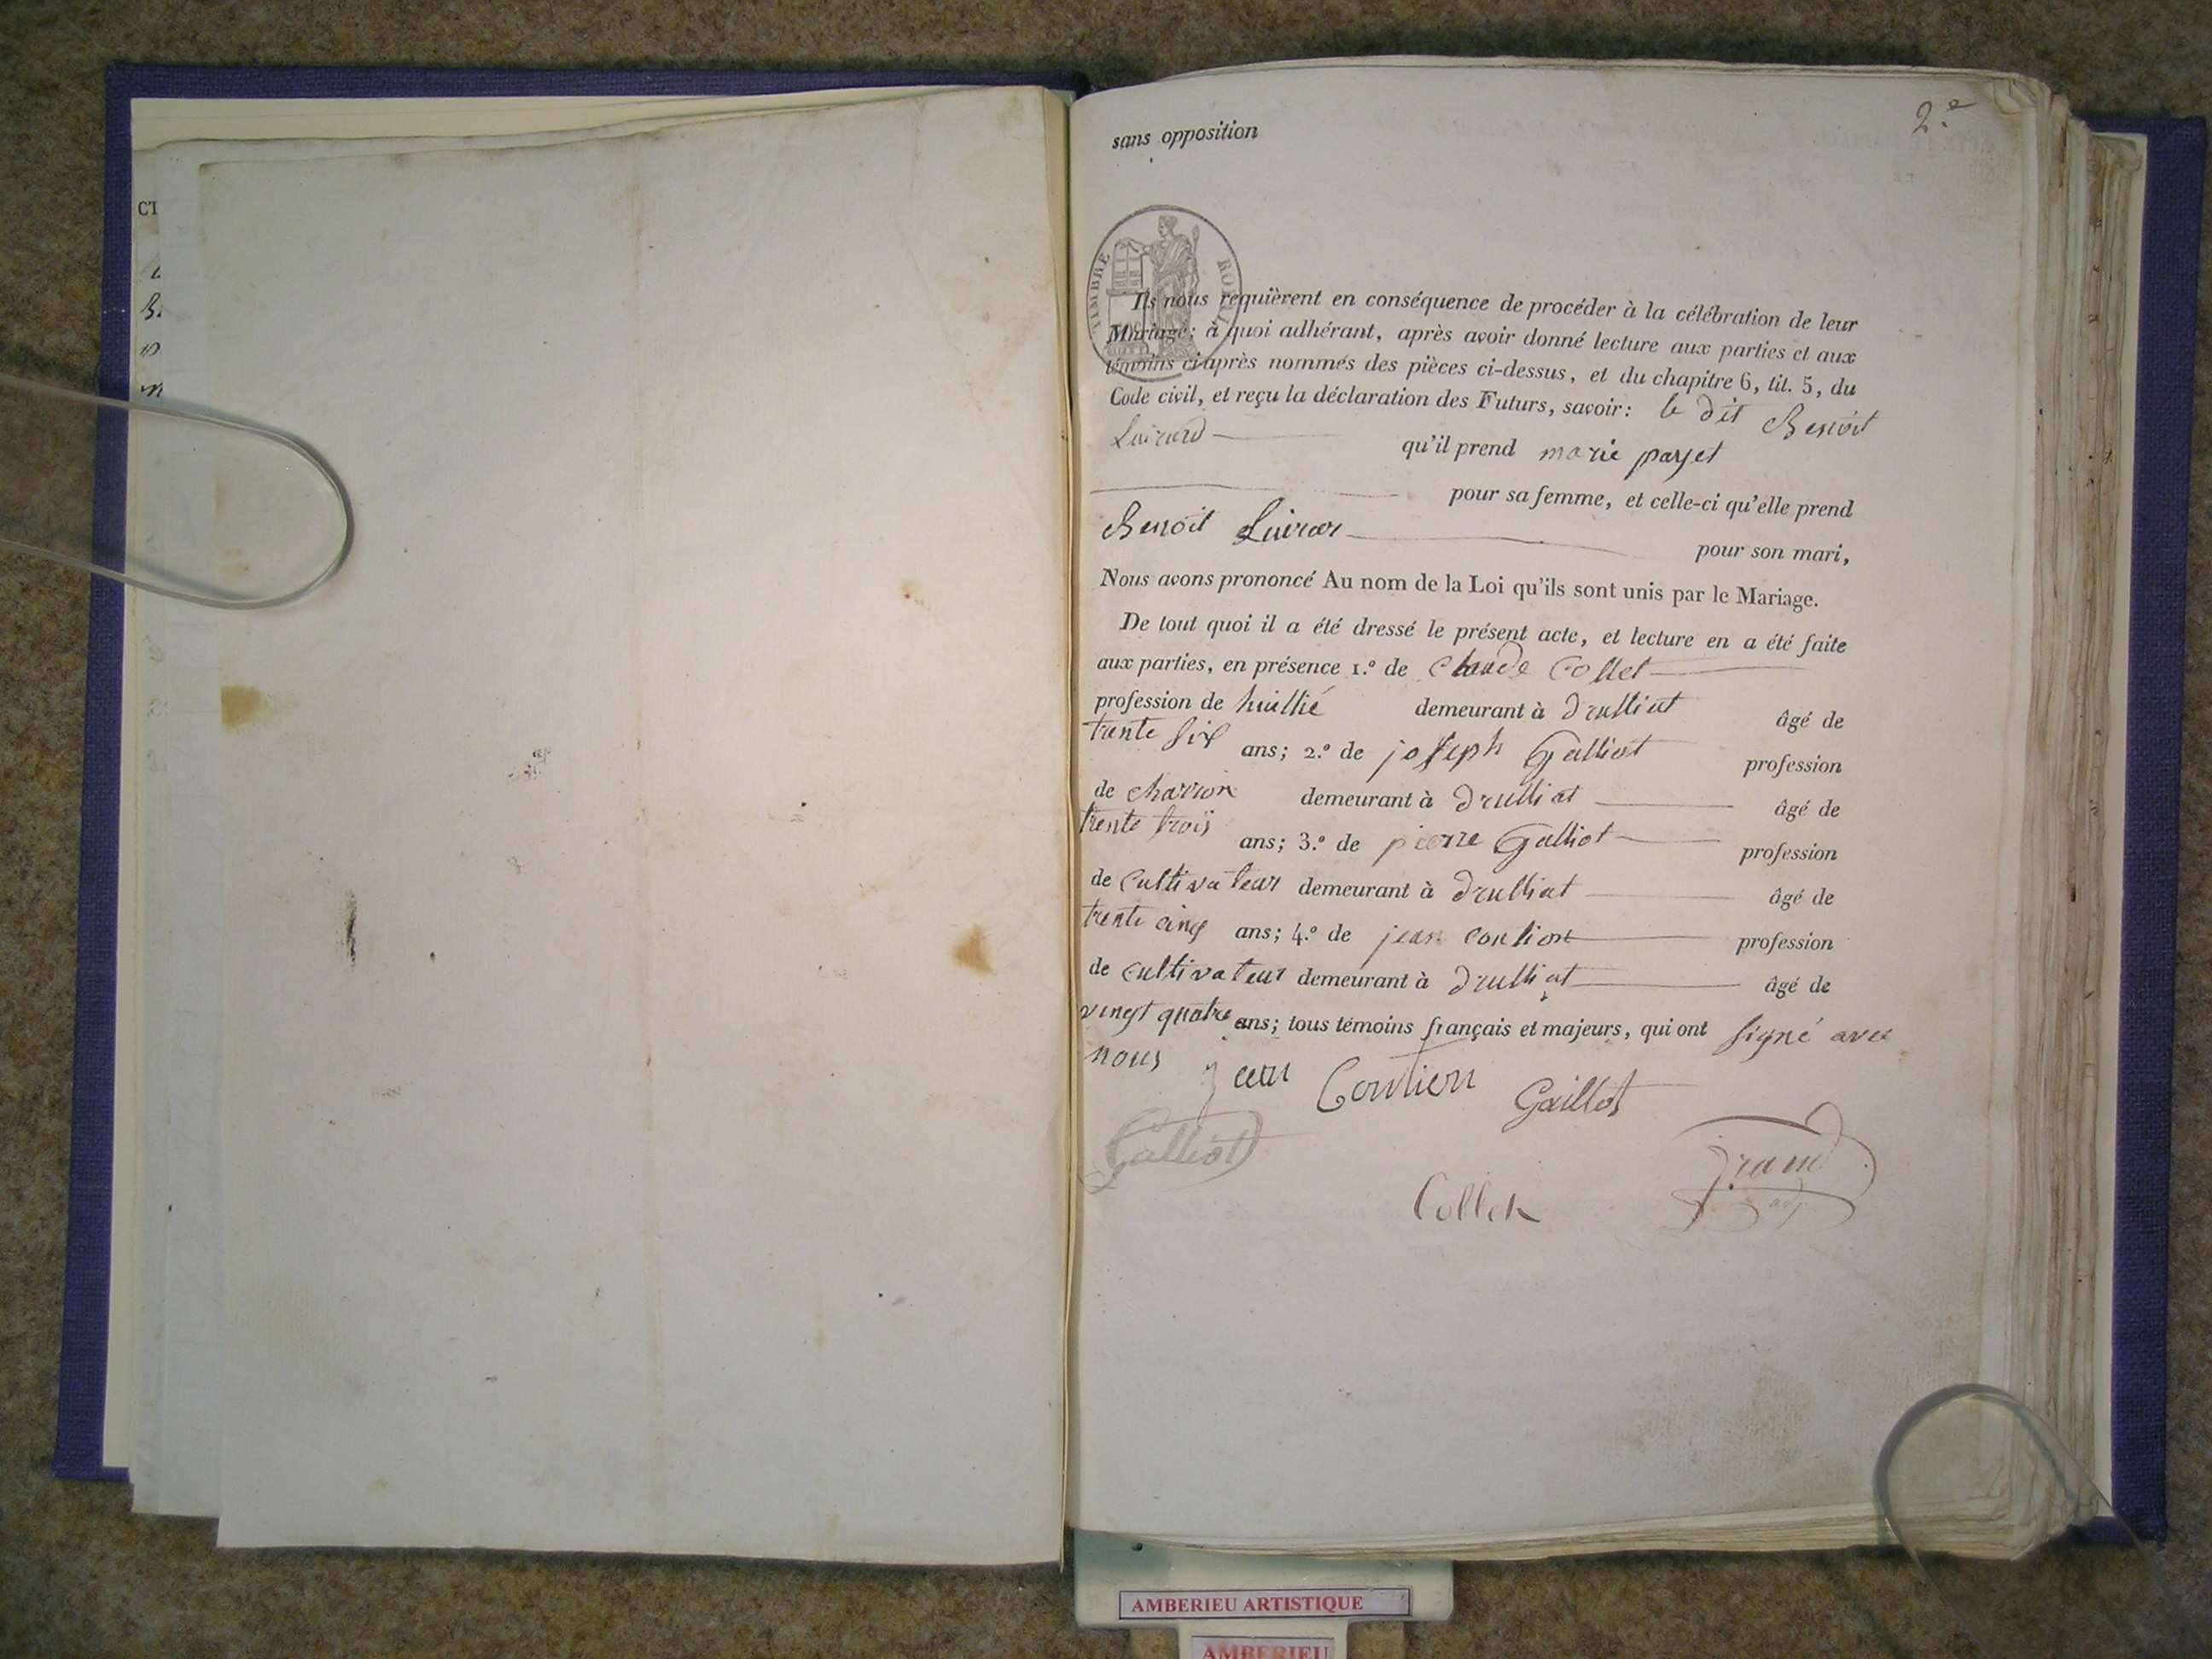 2.e
sans opposition
TIMBRE ROYAL
Ils nous requièrent en conséquence de procéder à la célébration de leur
Mariage; à quoi adhérant, après avoir donné lecture aux parties et aux
témoins ci-après nommés des pièces ci-dessus, et du chapitre 6, tit. 5, du
Code civil, et reçu la déclaration des Futurs, savoir: le dit Benoit
qu'il prend marie payet
pour sa femme, et celle-ci qu'elle prend
Benoit
pour son mari,
Nous avons prononcé Au nom de la Loi qu'ils sont unis par le Mariage.
De tout quoi il a été dressé le présent acte, et lecture en a été faite
aux parties, en présence 1.º de Claude Collet
profession de huillié demeurant à druilliat âgé de
trente six ans; 2.º de joseph Galliot profession
de charron demeurant à druilliat âgé de
trente trois ans; 3.º de pierre Galliot profession
de cultivateur demeurant à druilliat âgé de
trente cinq ans; 4.º de jean profession
de cultivateur demeurant à druilliat âgé de
vingt quatre ans; tous témoins français et majeurs, qui ont signé avec
nous jean Gaillot
Galliot
Collet
AMBERIEU ARTISTIQUE
AMBERIEU